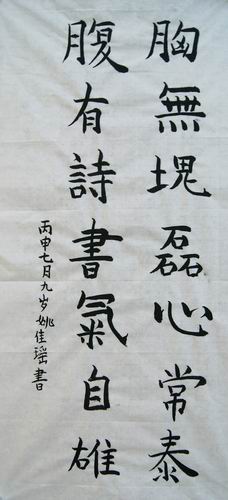 胸無塊磊心常泰
腹有詩書氣自雄
丙申七月九岁姚佳瑶書